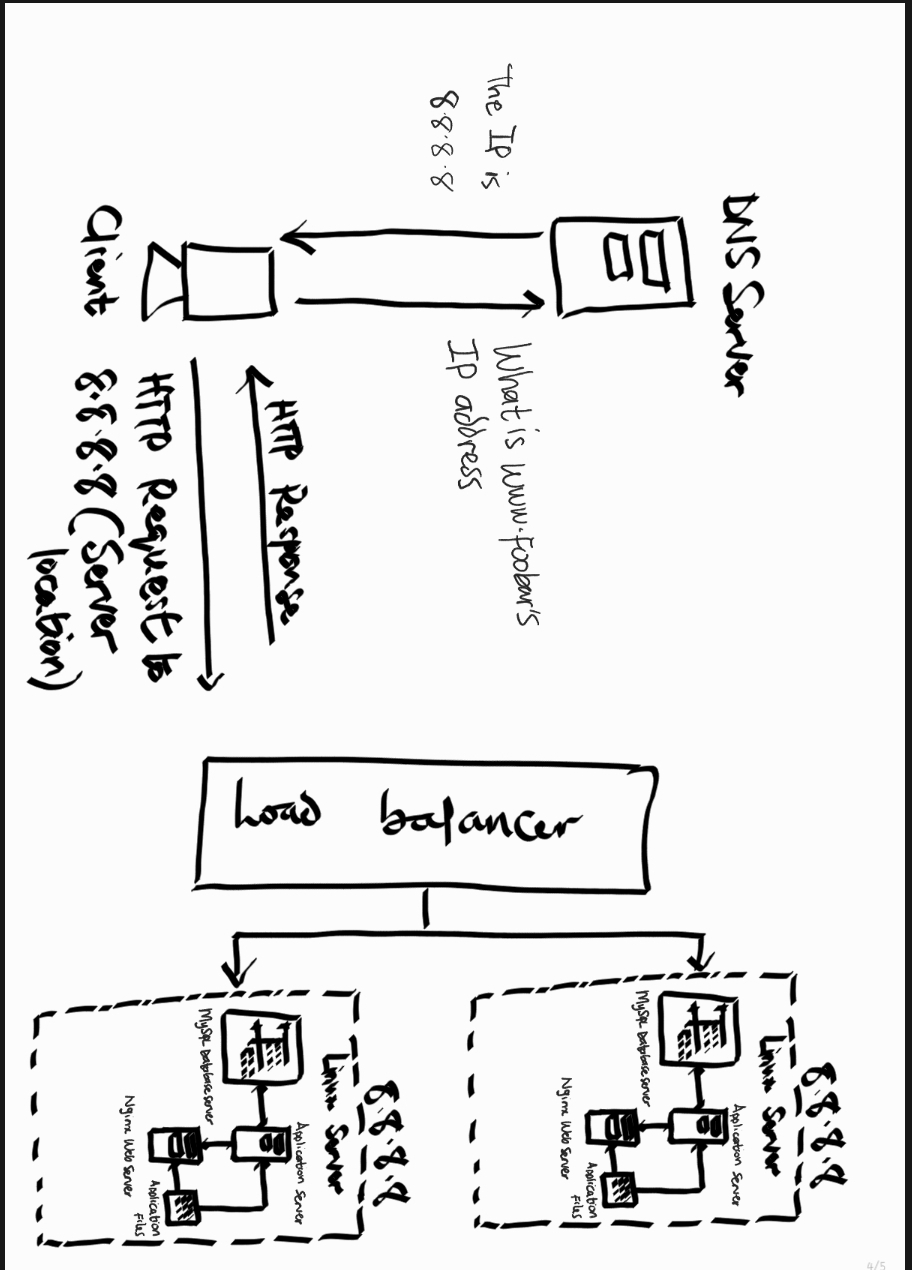 4/5
DNS Server
The IP is
8.8.8.8
What is www.foobar's
IP address
Client
HTTP Response
HTTP Request to
8.8.8.8 (Server
location)
Load balancer
8.8.8.8
Linux Server
Application Server
MySQL Database Server
Application
Files
Nginx Web Server
8.8.8.8
Linux Server
Application Server
MySQL Database Server
Application
Files
Nginx Web Server